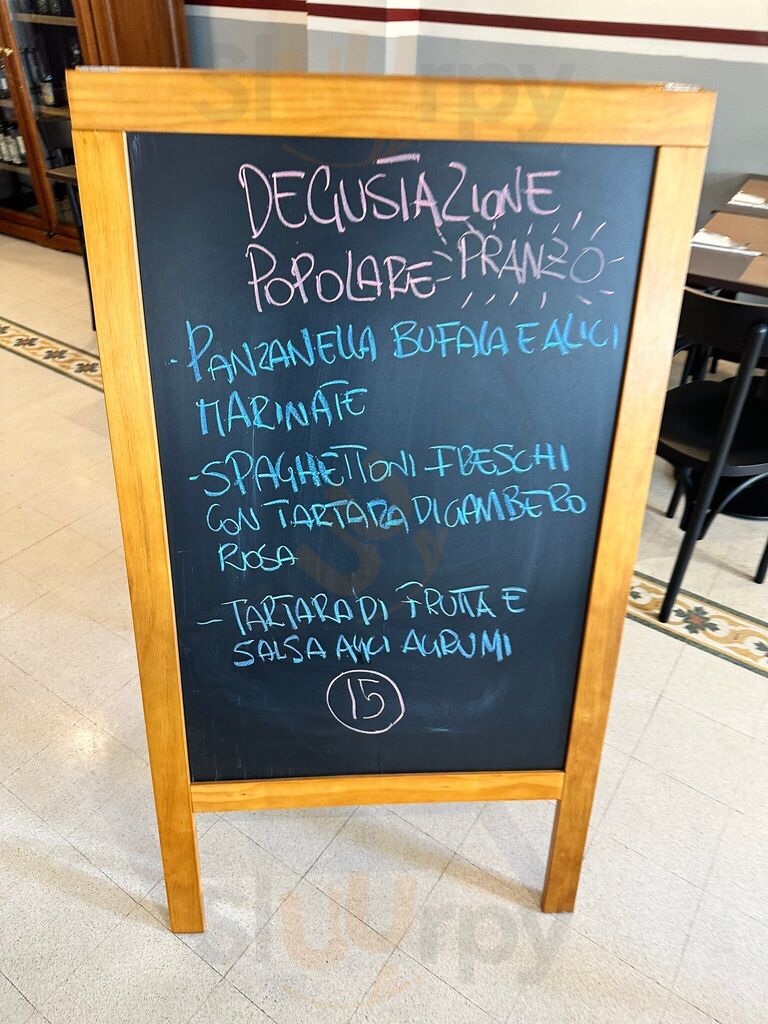 sluurpy
DEGUSTAZIONE
POPOLARE PRANZO
- PANZANELLA BUFALA E ALICI
MARINATE
- SPAGHETTONI FRESCHI
CON TARTARA DI GAMBERO
ROSA
- TARTARA DI FRUTTA E
SALSA AGLI AGRUMI
15
sluurpy